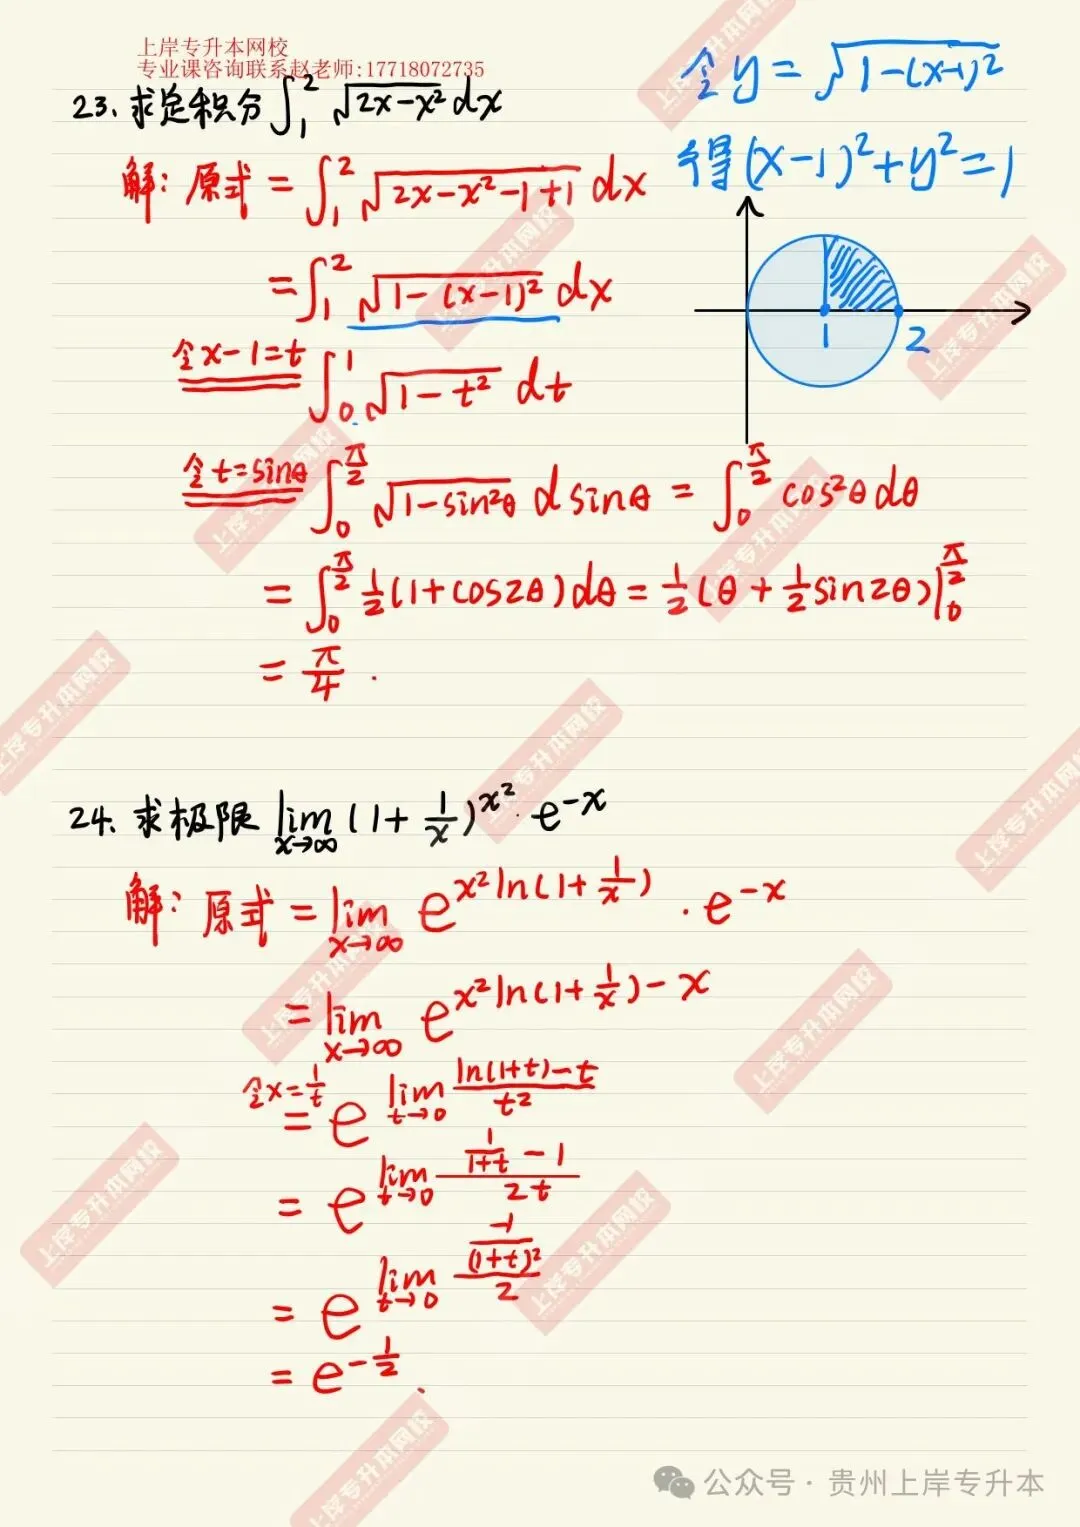 上岸专升本网校
专业课咨询联系赵老师:17718072735
23. 求定积分 ∫₁² √(2x-x²) dx
令 y = √(1-(x-1)²)
得 (x-1)²+y²=1
解: 原式 = ∫₁² √(2x-x²-1+1) dx
= ∫₁² √(1-(x-1)²) dx
1 2
令x-1=t ∫₀¹ √(1-t²) dt
令t=sinθ ∫₀^(π/2) √(1-sin²θ) d sinθ = ∫₀^(π/2) cos²θ dθ
= ∫₀^(π/2) 1/2 (1+cos2θ) dθ = 1/2 (θ + 1/2 sin2θ) |₀^(π/2)
= π/4 .
24. 求极限 lim x→∞ (1+1/x)^(x²) · e^(-x)
解: 原式 = lim x→∞ e^(x² ln(1+1/x)) · e^(-x)
= lim x→∞ e^(x² ln(1+1/x) - x)
令x=1/t = e^(lim t→0 (ln(1+t)-t)/t²)
= e^(lim t→0 (1/(1+t) - 1)/2t)
= e^(lim t→0 (-1/(1+t)²)/2)
= e^(-1/2) .
上岸专升本网校
公众号 · 贵州上岸专升本